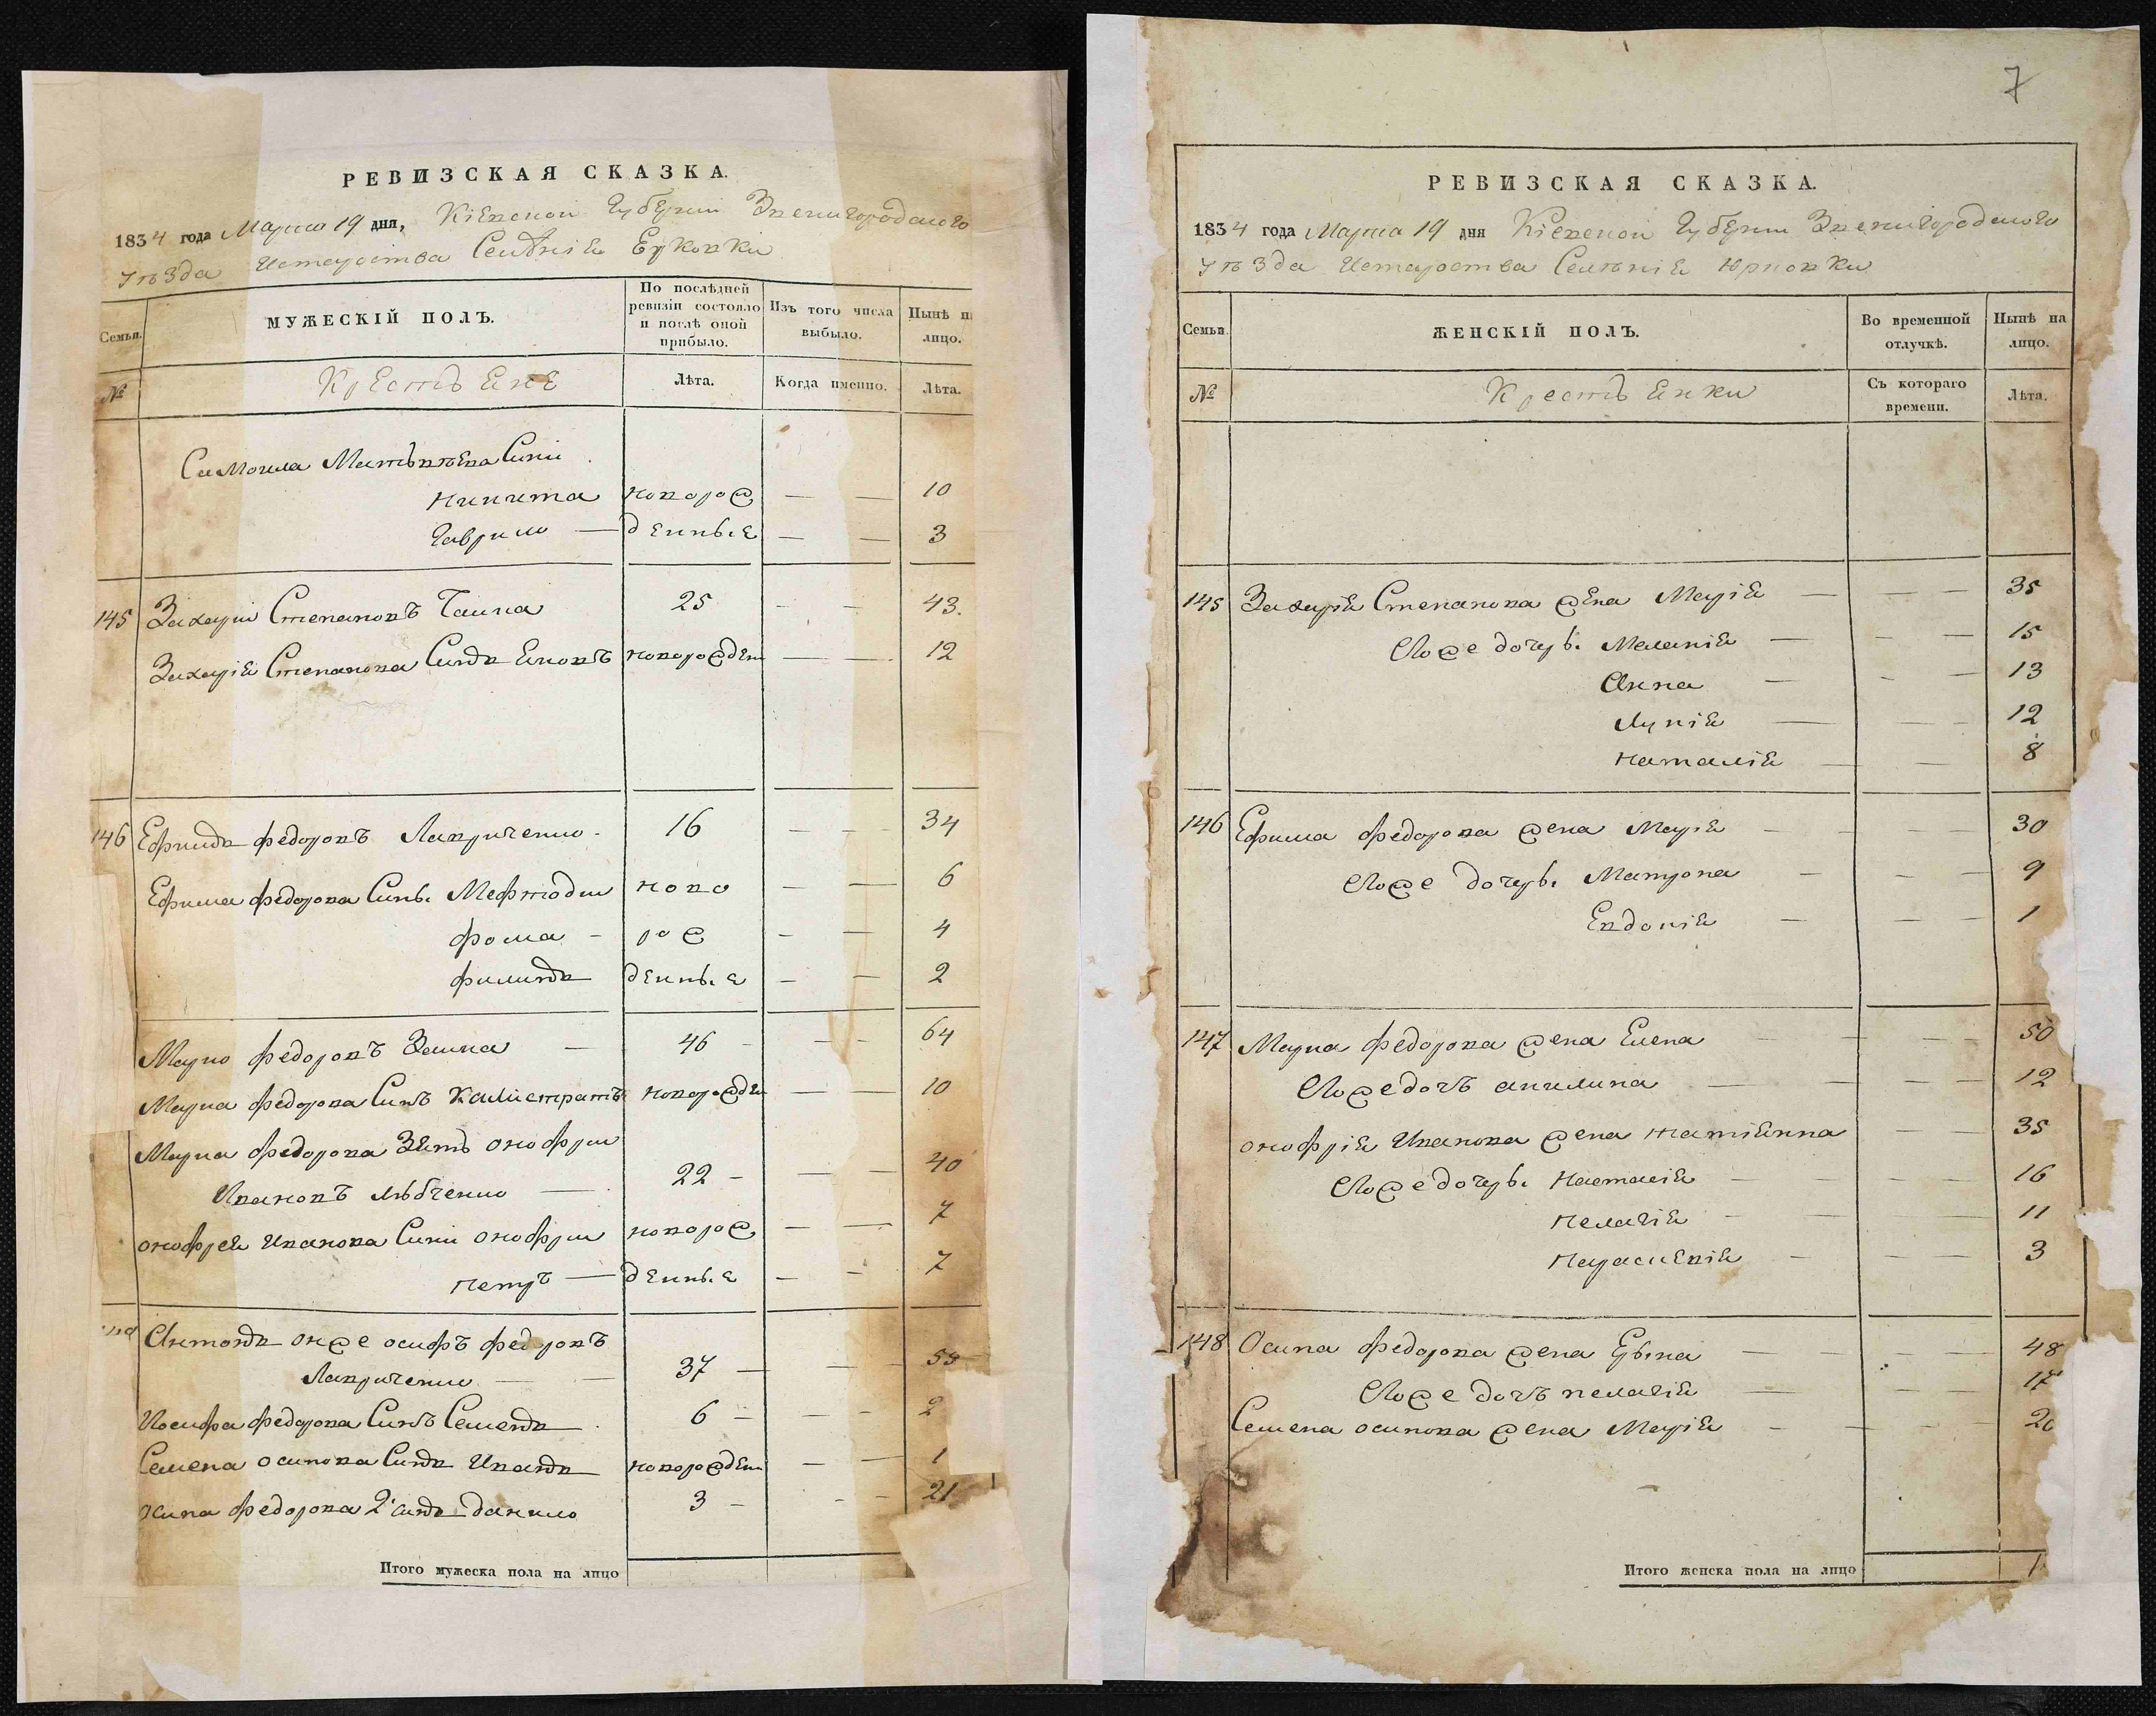 РЕВИЗСКАЯ СКАЗКА.
1834 года Марта 19 дня, Кіевской Губерніи Звенигородскаго
уѣзда Истароства Селѣнія Ерковки
Семьи.
МУЖЕСКІЙ ПОЛЪ.
По послѣдней ревизіи состояло и послѣ оной прибыло.
Изъ того числа выбыло.
Нынѣ н лицо.
№
Крестьяне
Лѣта.
Когда именно.
Лѣта.
Самоила Матьвѣева Сини
никита новорож — — 10
Гаврило —денные — — 3
145 Захари Степановъ Галка 25 - - 43.
Захарія Степанова Синъ новорожден — — 12
146 Ефимъ федоровъ Лавриченко - 16 — — 34
Ефима федорова Сины Мефтоди ново — — 6
фома - рож — — 4
филипъ денные — — 2
Марко федоровъ Заика — 46 - — — 64
Марка федорова Синъ Калистратъ новорожден — — 10
Марка федорова Зять онофри
Ивановъ — 22 - — — 40
онофрея иванова Сини онофри новорож — — 7
петръ — денные — — 7
Антонъ онже осифъ федоровъ
Лавриченко — — 37 — — — 55
Иосифа федорова Синъ Семенъ 6 - — — 2
Семена осипова Синъ Иванъ новорожден — — 1
федорова 2й синъ данило 3 - - — 21
Итого мужеска пола на лицо
7
РЕВИЗСКАЯ СКАЗКА.
1834 года Марта 19 дня Кіевской Губерніи Звенигородскаго
уѣзда Истароства Селѣнія Юрковки
Семьи.
ЖЕНСКІЙ ПОЛЪ.
Во временной отлучкѣ.
Нынѣ на лицо.
№
Крестьянки
Съ котораго времени.
Лѣта.
145 Захарія Степанова жена Марія — — — 35
Его же дочеры Меланія — - — 15
Анна — - — 13
Лукія — — — 12
наталія — — 8
146 Ефима федорова жена Марія — — — 30
Его же дочеры Матрона — — — 9
Евдокія — — — 1
147 Марка федорова жена Елена — — — 50
Его же дочъ акилина — — — 12
онофрія Иванова жена татіянна — — 35
Его же дочеры Наталія — — — 16
пелагія — — — 11
Параскевія — — — 3
148 Осипа федорова жена — — — 48
Его же дочъ пелагія — — — 17
Семена осипова жена Марія — — — 20
Итого женска пола на лицо